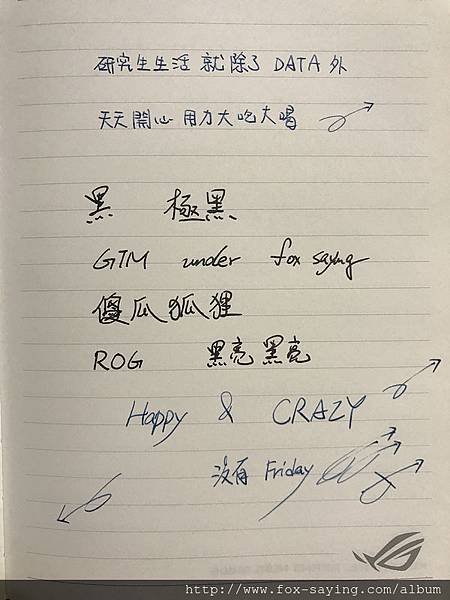 研究生生活 就除了 DATA 外
天天開心 用力大吃大喝
黑 極黑
GTM under fox saying
傻瓜狐狸
ROG 黑亮黑亮
Happy & CRAZY
沒有 Friday
http://www.fox-saying.com/album